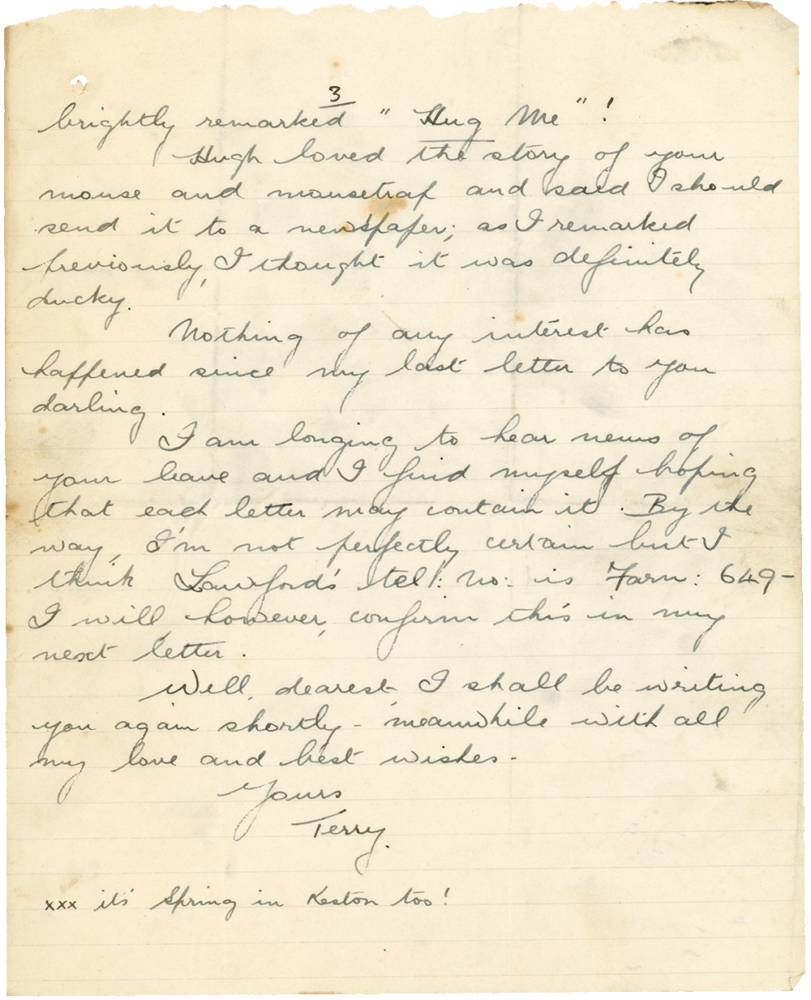 3
brightly remarked "Hug Me"!
Hugh loved the story of your
mouse and mousetrap and said I should
send it to a newspaper; as I remarked
previously, I thought it was definitely
ducky.
Nothing of any interest has
happened since my last letter to you
darling.
I am longing to hear news of
your leave and I find myself hoping
that each letter may contain it. By the
way, I'm not perfectly certain but I
think Lawford's tel: no: is Farn: 649-
I will, however, confirm this in my
next letter.
Well, dearest I shall be writing
you again shortly - meanwhile with all
my love and best wishes-
Yours
Terry.
xxx it's Spring in Keston too!